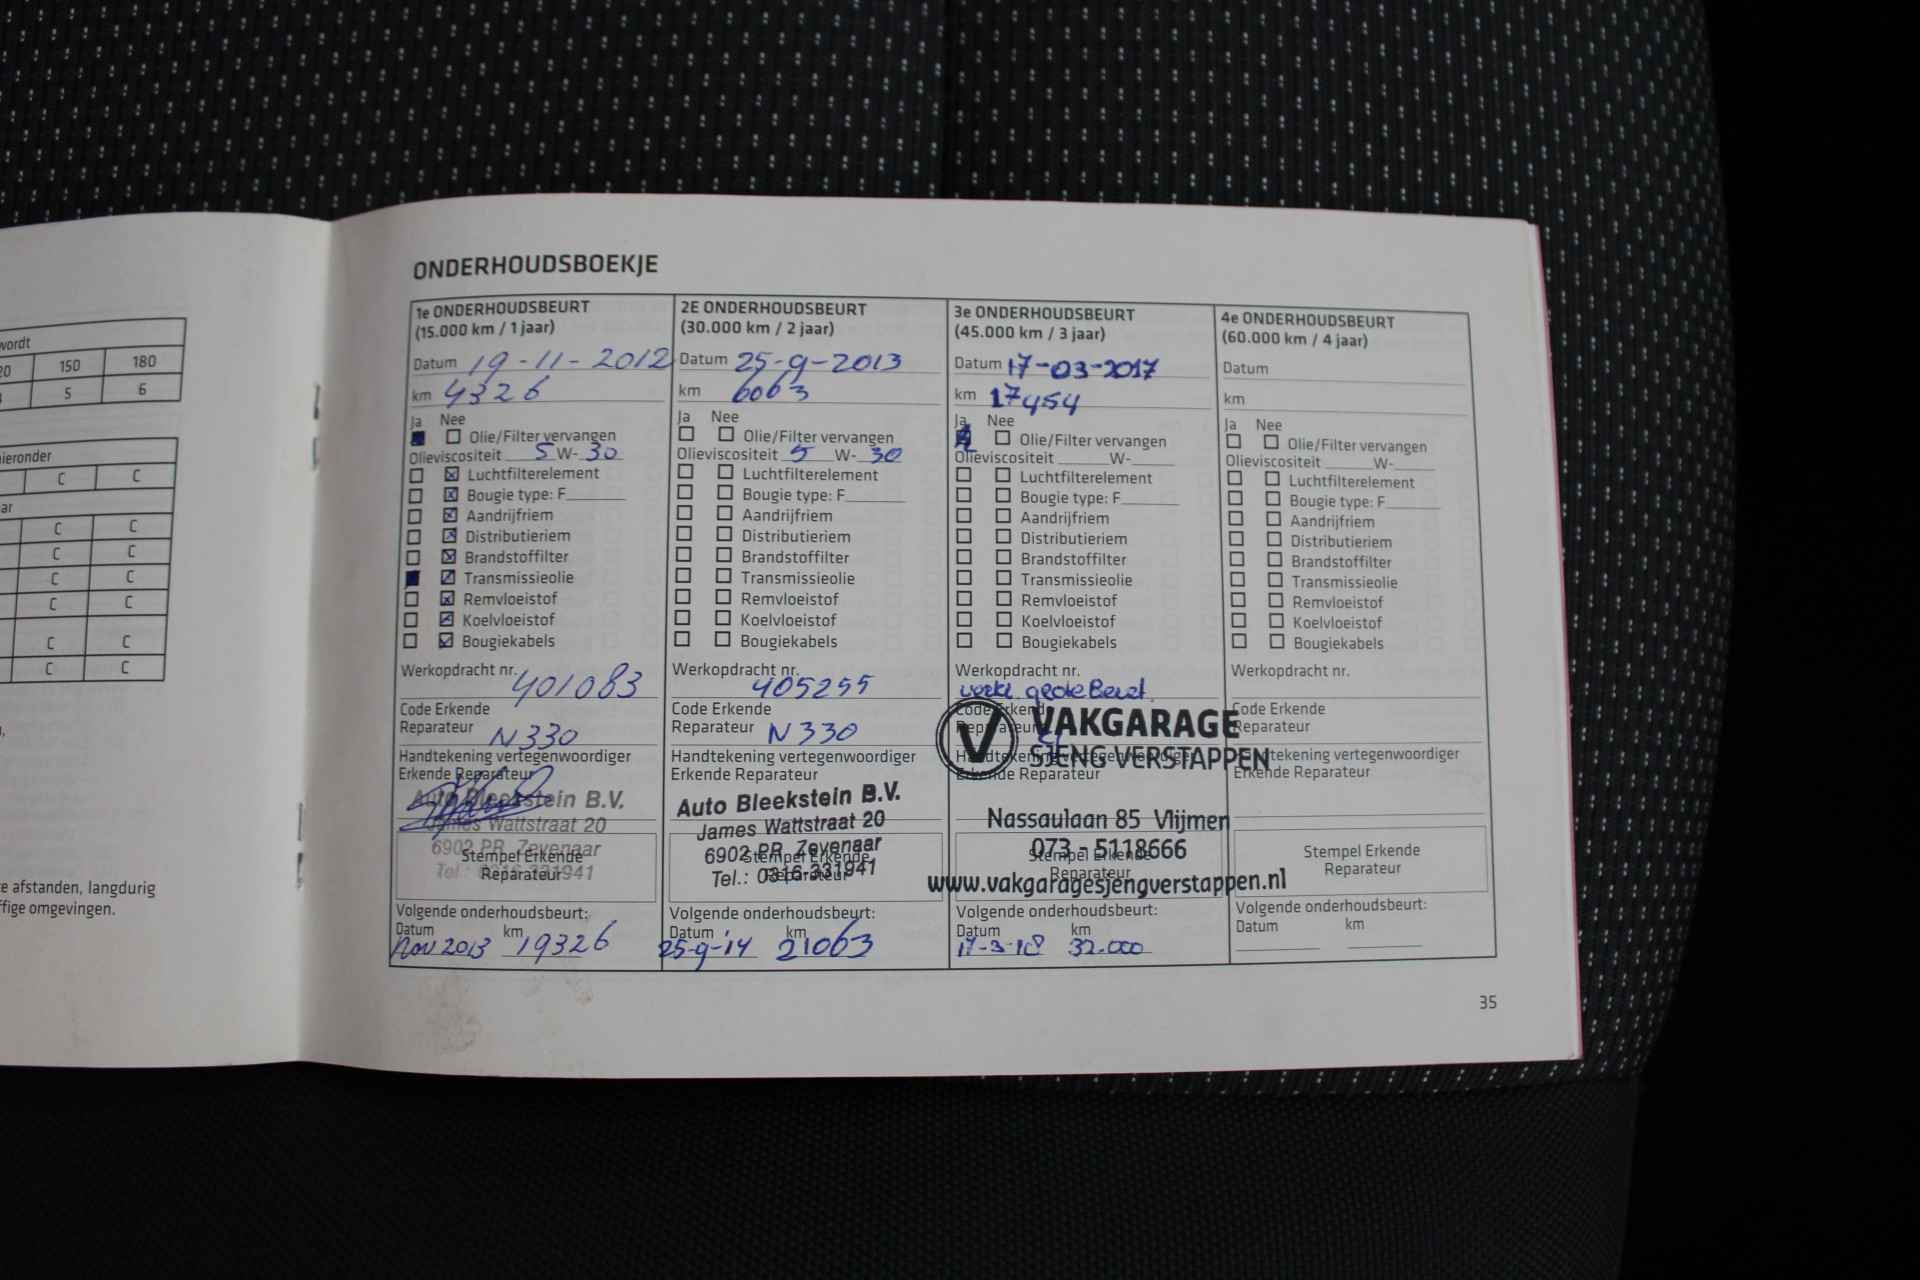 wordt
20 150 180
5 6
hieronder
C C
aar
C C
C C
C C
C C
C C
C C
te afstanden, langdurig
ffige omgevingen.
ONDERHOUDSBOEKJE
1e ONDERHOUDSBEURT
(15.000 km / 1 jaar)
Datum 19-11-2012
km 4326
Ja Nee
Olie/Filter vervangen
Olieviscositeit 5 W- 30
Luchtfilterelement
Bougie type: F
Aandrijfriem
Distributieriem
Brandstoffilter
Transmissieolie
Remvloeistof
Koelvloeistof
Bougiekabels
Werkopdracht nr.
401083
Code Erkende
Reparateur N330
Handtekening vertegenwoordiger
Erkende Reparateur
Auto Bleekstein B.V.
James Wattstraat 20
6902 PR Zevenaar
Tel.: 0316-331941
Stempel Erkende
Reparateur
Volgende onderhoudsbeurt:
Datum km
Nov 2013 19326
2E ONDERHOUDSBEURT
(30.000 km / 2 jaar)
Datum 25-9-2013
km 6063
Ja Nee
Olie/Filter vervangen
Olieviscositeit 5 W- 30
Luchtfilterelement
Bougie type: F
Aandrijfriem
Distributieriem
Brandstoffilter
Transmissieolie
Remvloeistof
Koelvloeistof
Bougiekabels
Werkopdracht nr.
405255
Code Erkende
Reparateur N330
Handtekening vertegenwoordiger
Erkende Reparateur
Auto Bleekstein B.V.
James Wattstraat 20
6902 PR Zevenaar
Tel.: 0316-331941
Stempel Erkende
Reparateur
Volgende onderhoudsbeurt:
Datum km
25-9-'14 21063
3e ONDERHOUDSBEURT
(45.000 km / 3 jaar)
Datum 17-03-2017
km 17454
Ja Nee
Olie/Filter vervangen
Olieviscositeit W-
Luchtfilterelement
Bougie type: F
Aandrijfriem
Distributieriem
Brandstoffilter
Transmissieolie
Remvloeistof
Koelvloeistof
Bougiekabels
Werkopdracht nr.
Code Erkende
Reparateur
Handtekening vertegenwoordiger
Erkende Reparateur
V VAKGARAGE
SJENG VERSTAPPEN
Nassaulaan 85 Vlijmen
073 - 5118666
www.vakgaragesjengverstappen.nl
Stempel Erkende
Reparateur
Volgende onderhoudsbeurt:
Datum km
17-3-18 32.000
4e ONDERHOUDSBEURT
(60.000 km / 4 jaar)
Datum
km
Ja Nee
Olie/Filter vervangen
Olieviscositeit W-
Luchtfilterelement
Bougie type: F
Aandrijfriem
Distributieriem
Brandstoffilter
Transmissieolie
Remvloeistof
Koelvloeistof
Bougiekabels
Werkopdracht nr.
Code Erkende
Reparateur
Handtekening vertegenwoordiger
Erkende Reparateur
Stempel Erkende
Reparateur
Volgende onderhoudsbeurt:
Datum km
35